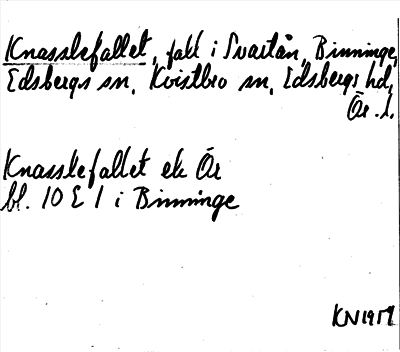 Knasslefallet, fall i Svartån, Binninge,
Edsbergs sn, Kvistbro sn, Edsbergs hd,
Ör. l.
Knasslefallet ek Ör
bl. 10 E 1 i Binninge